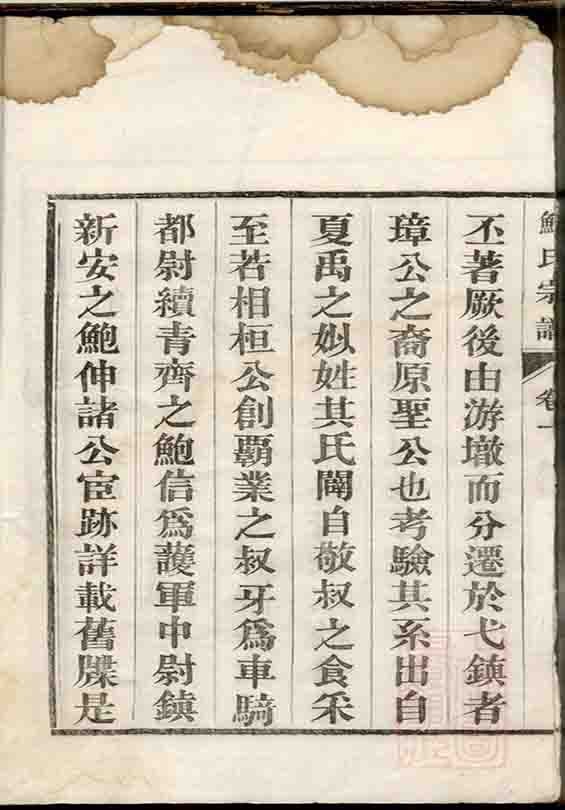 鮑氏宗譜 卷一
丕著厥後由游墩而分遷於弋鎮者
璋公之裔原聖公也考驗其系出自
夏禹之姒姓其氏闡自敬叔之食采
至若相桓公創霸業之叔牙為車騎
都尉續青齊之鮑信為護軍中尉鎮
新安之鮑伸諸公宦跡詳載舊牒是